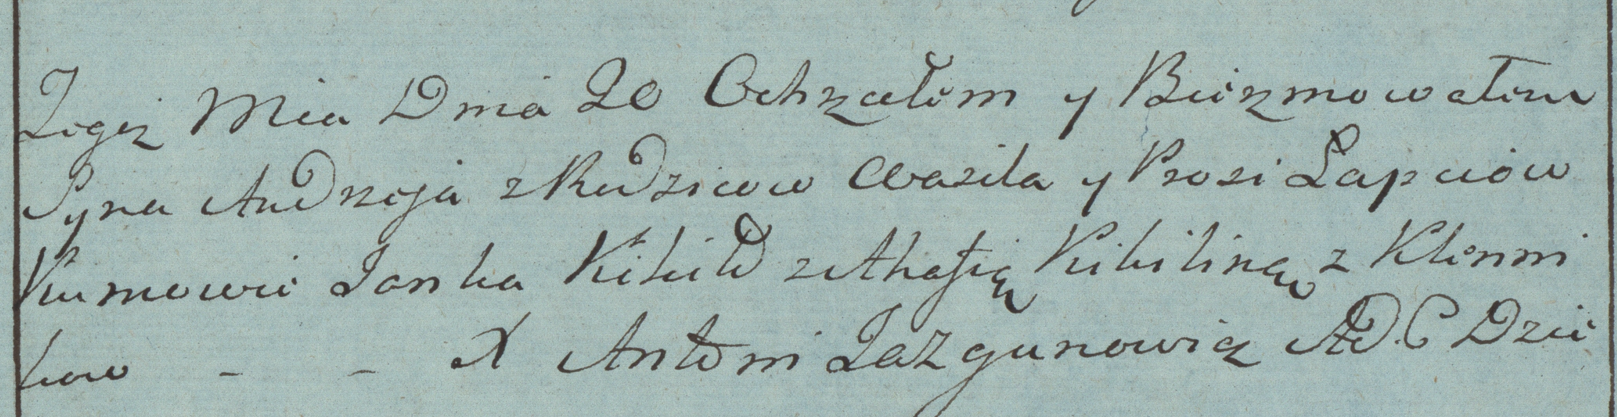 Tegoż Mca Dnia 20 Ochrzciłem y Bierzmowałem
Syna Andrzeja z Rodzicow Wasila y Prosi Łapciów
Kumowie Janka Kikiło z Ahafią Kikiliną z Klenni
kow - - X Antoni Jazgunowicz AD.C Dzie